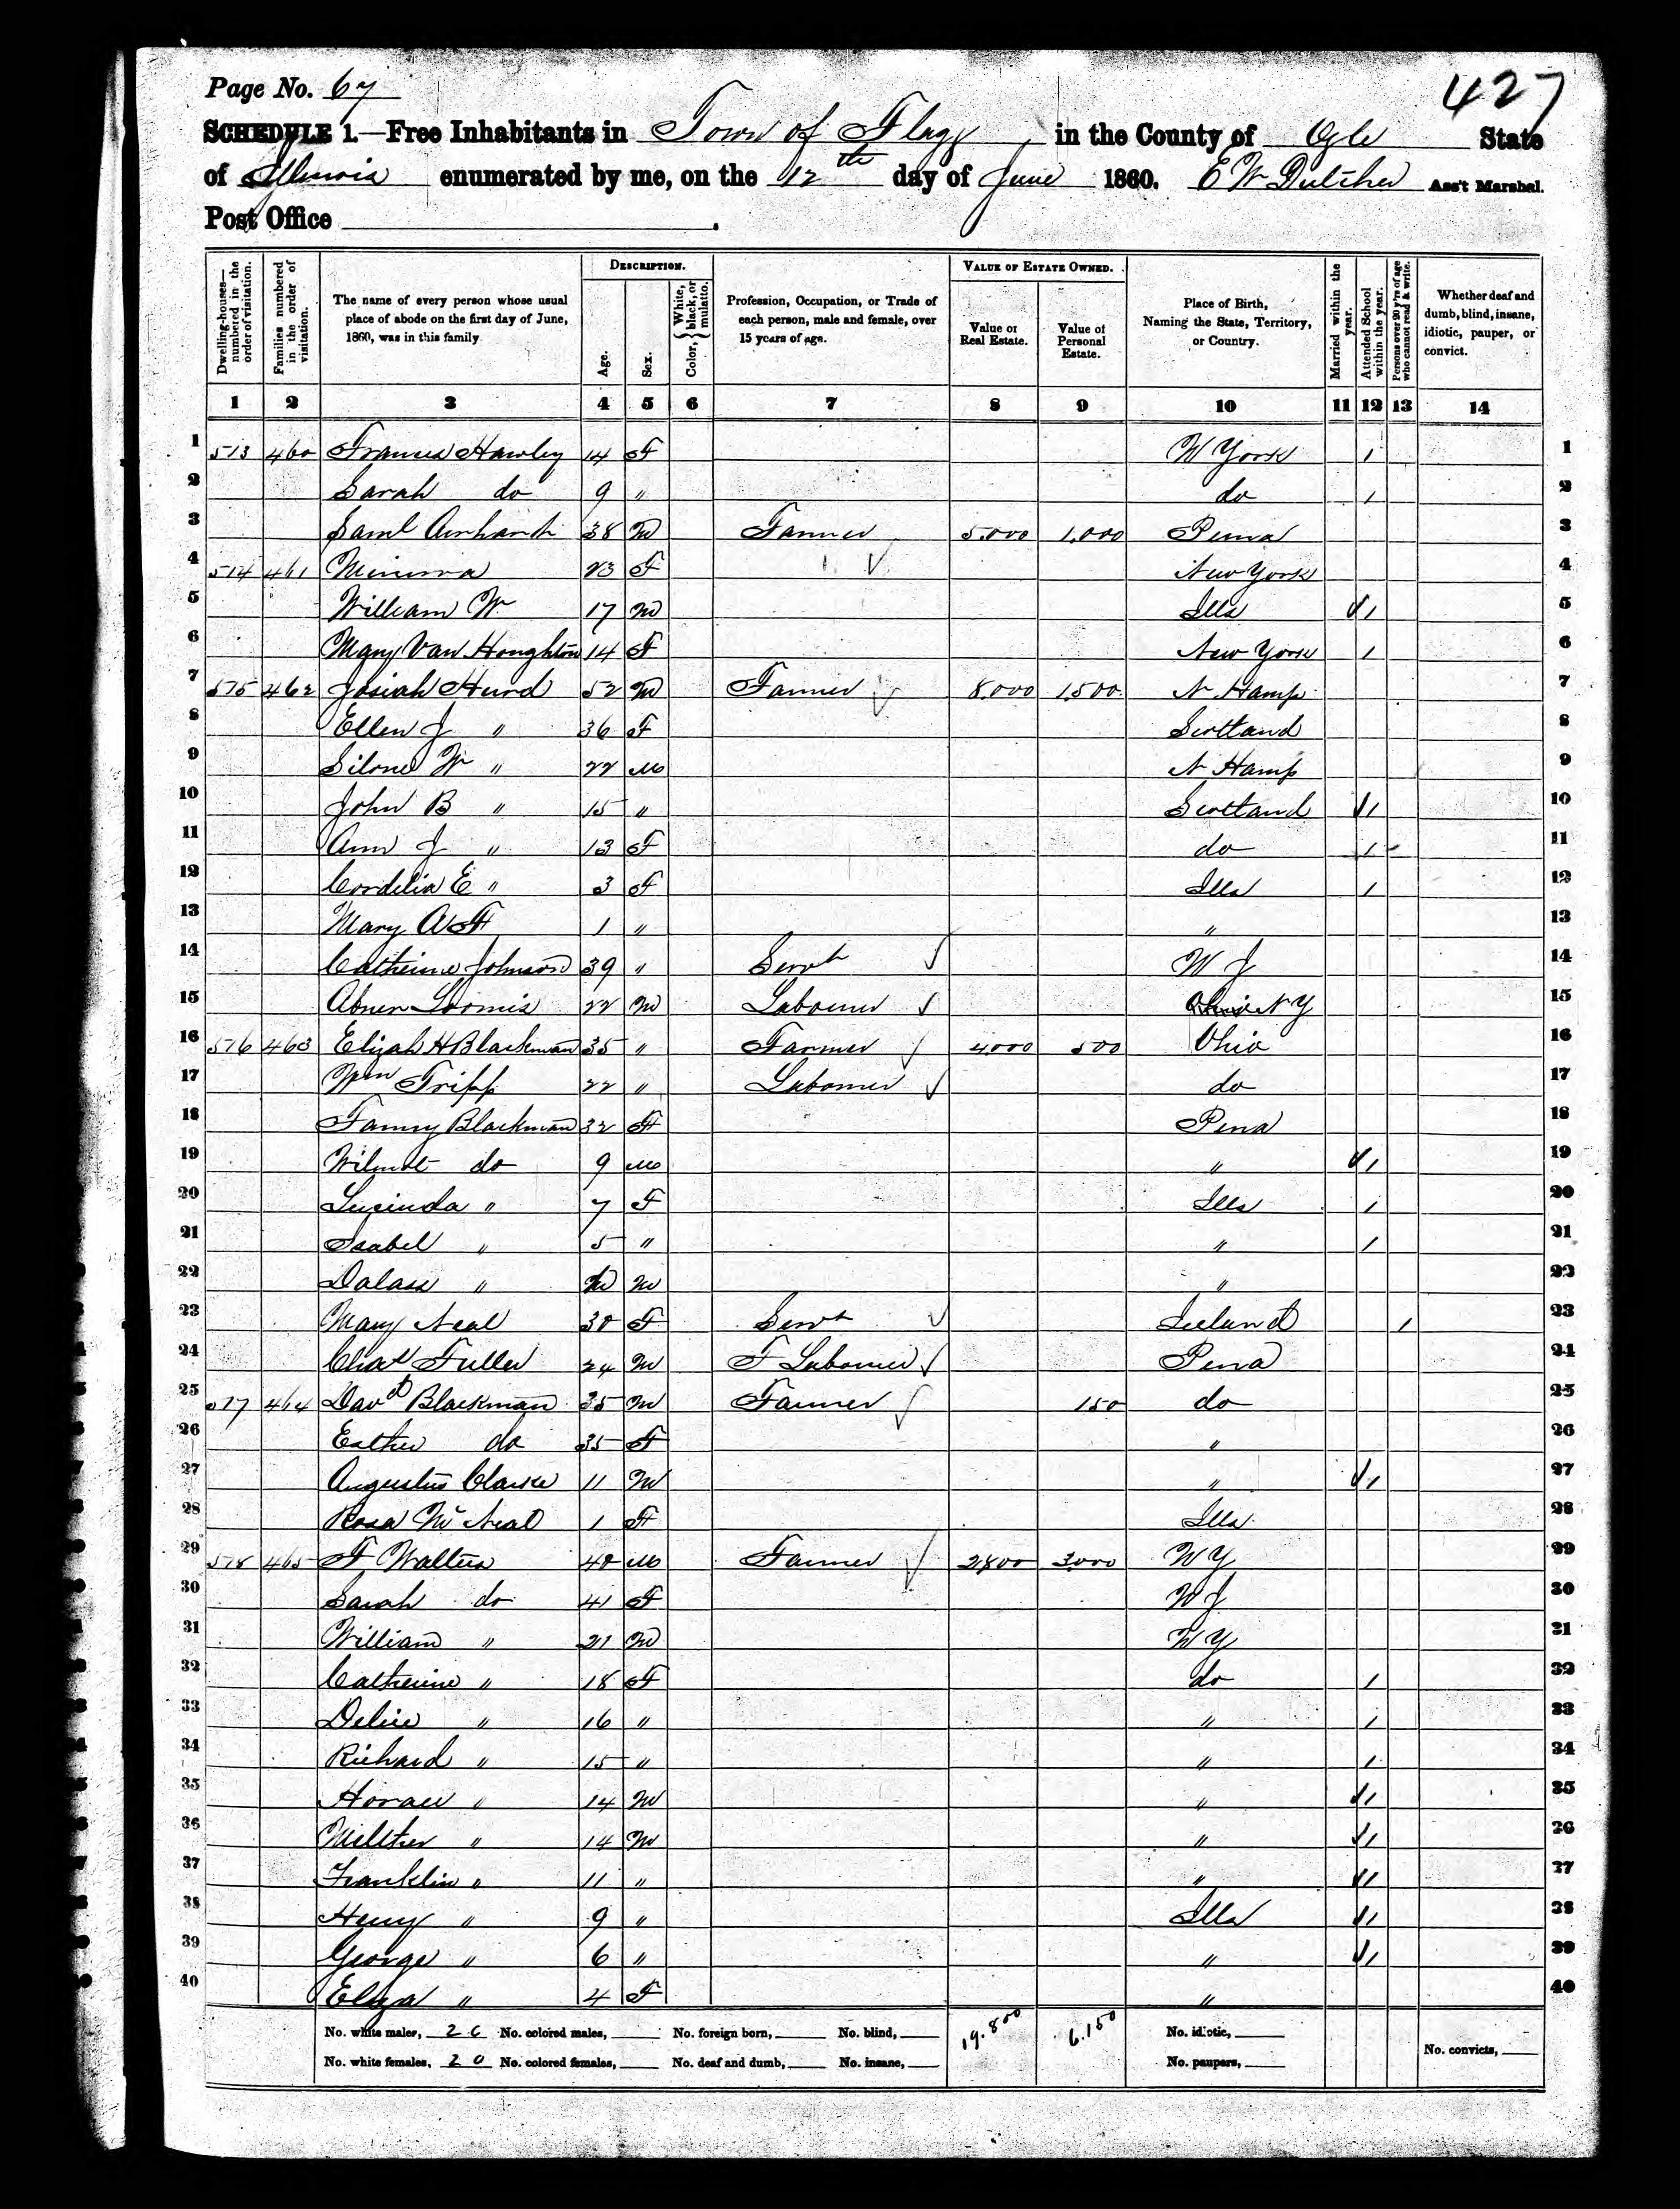 Page No. 67
427
SCHEDULE 1.—Free Inhabitants in Town of Flagg in the County of Ogle State
of Illinois enumerated by me, on the 12th day of June 1860. E W Dutcher Ass't Marshal.
Post Office
Dwelling-houses— numbered in the order of visitation.
Families numbered in the order of visitation.
The name of every person whose usual place of abode on the first day of June, 1860, was in this family
DESCRIPTION.
Age.
Sex.
Color, { White, black, or mulatto.
Profession, Occupation, or Trade of each person, male and female, over 15 years of age.
VALUE OF ESTATE OWNED.
Value of Real Estate.
Value of Personal Estate.
Place of Birth, Naming the State, Territory, or Country.
Married within the year.
Attended School within the year.
Persons over 20 y'rs of age who cannot read & write.
Whether deaf and dumb, blind, insane, idiotic, pauper, or convict.
1 2 3 4 5 6 7 8 9 10 11 12 13 14
1 513 460 Frances Hawley 14 F N York 1 1
2 Sarah do 9 " do 1 2
3 Saml 38 M Farmer 5.000 1.000 Penna 3
4 514 461 Minerva 23 F New York 4
5 William W 17 M Ills 1 5
6 Mary Van Houghton 14 F New York 1 6
7 515 462 Josiah Hurd 52 M Farmer 8.000 1.500 N Hamp 7
8 Ellen J " 36 F Scotland 8
9 W " 22 M N Hamp 9
10 John B " 15 " Scotland 1 10
11 Ann J " 13 F do 1 11
12 Cordelia E " 3 F Ills 1 12
13 Mary A 1 " " 13
14 Catherine Johnson 39 " Servt N J 14
15 Abner Loomis 22 M Laborer N Y 15
16 516 463 Elijah H Blackman 35 " Farmer 4000 500 Ohio 16
17 Wm Tripp 22 " Laborer do 17
18 Fanny Blackman 32 F Pena 18
19 Wilmot do 9 M " 1 19
20 Lucinda " 7 F Ills 1 20
21 Isabel " 5 " " 1 21
22 Dalass " M " 22
23 Mary Neal 30 F Servt Ireland 1 23
24 Chat Fuller 24 M F Laborer Pena 24
25 517 464 Davd Blackman 35 M Farmer 150 do 25
26 Esther do 35 F " 26
27 Augustus Clarke 11 M " 1 27
28 Rosa McNeal 1 F Ills 28
29 518 465 F Walters 48 M Farmer 2800 3000 N Y 29
30 Sarah do 41 F N J 30
31 William " 21 M N Y 31
32 Catherine " 18 F do 1 32
33 Delia " 16 " " 1 33
34 Richard " 15 " " 1 34
35 Horace " 14 M " 1 35
36 " 14 M " 1 36
37 Franklin " 11 " " 1 37
38 Henry " 9 " Ills 1 38
39 George " 6 " " 1 39
40 Eliza " 4 F " 40
No. white males, 20 No. colored males, No. foreign born, No. blind, 19.800 6.150 No. idiotic,
No. white females, 20 No. colored females, No. deaf and dumb, No. insane, No. paupers, No. convicts,